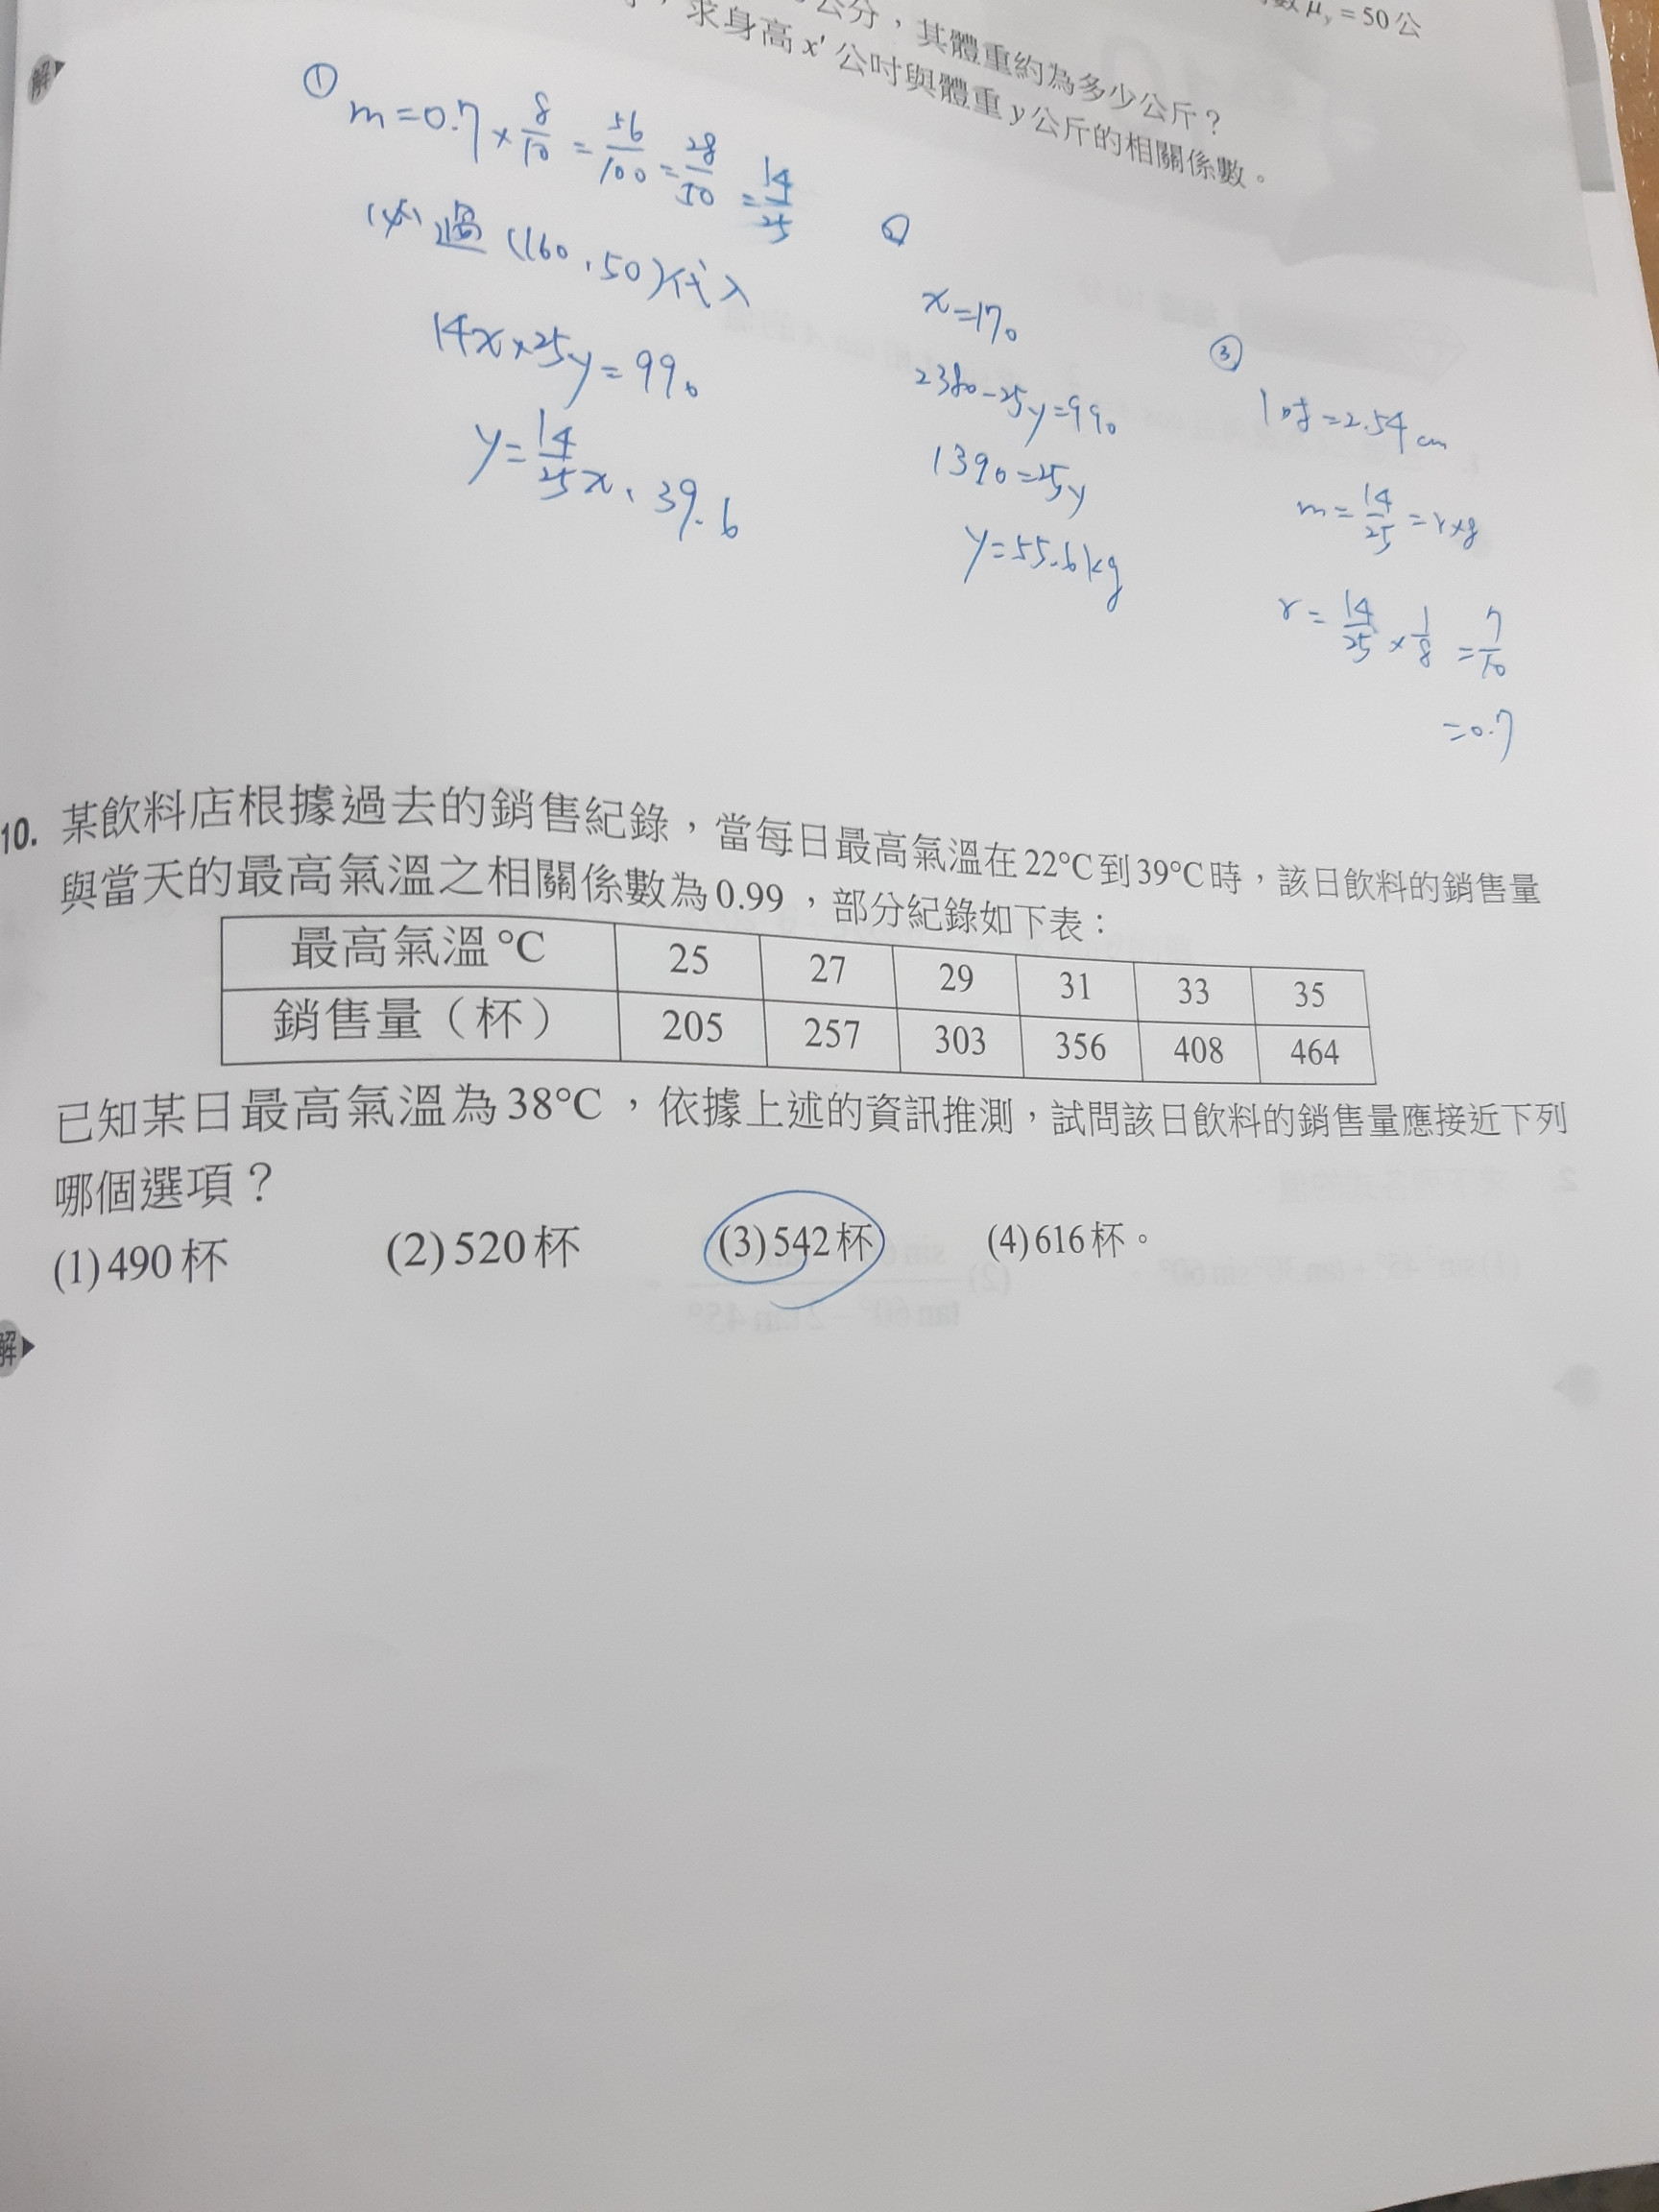 數 μy = 50 公
公分，其體重約為多少公斤？
，求身高 x′ 公吋與體重 y 公斤的相關係數。
解
①
m=0.7×8/10=56/100=28/50=14/25
必過 (160,50)代入
14x×25y=990
y=14/25x、39.6
x=170
2380-25y=990
1390=25y
y=55.6kg
③
1吋=2.54cm
m=14/25=r×8
r=14/25×1/8=7/10
=0.7
10. 某飲料店根據過去的銷售紀錄，當每日最高氣溫在22°C到39°C時，該日飲料的銷售量
與當天的最高氣溫之相關係數為0.99，部分紀錄如下表：
最高氣溫°C 25 27 29 31 33 35
銷售量（杯） 205 257 303 356 408 464
已知某日最高氣溫為38°C，依據上述的資訊推測，試問該日飲料的銷售量應接近下列
哪個選項？
(1)490杯 (2)520杯 (3)542杯 (4)616杯。
解